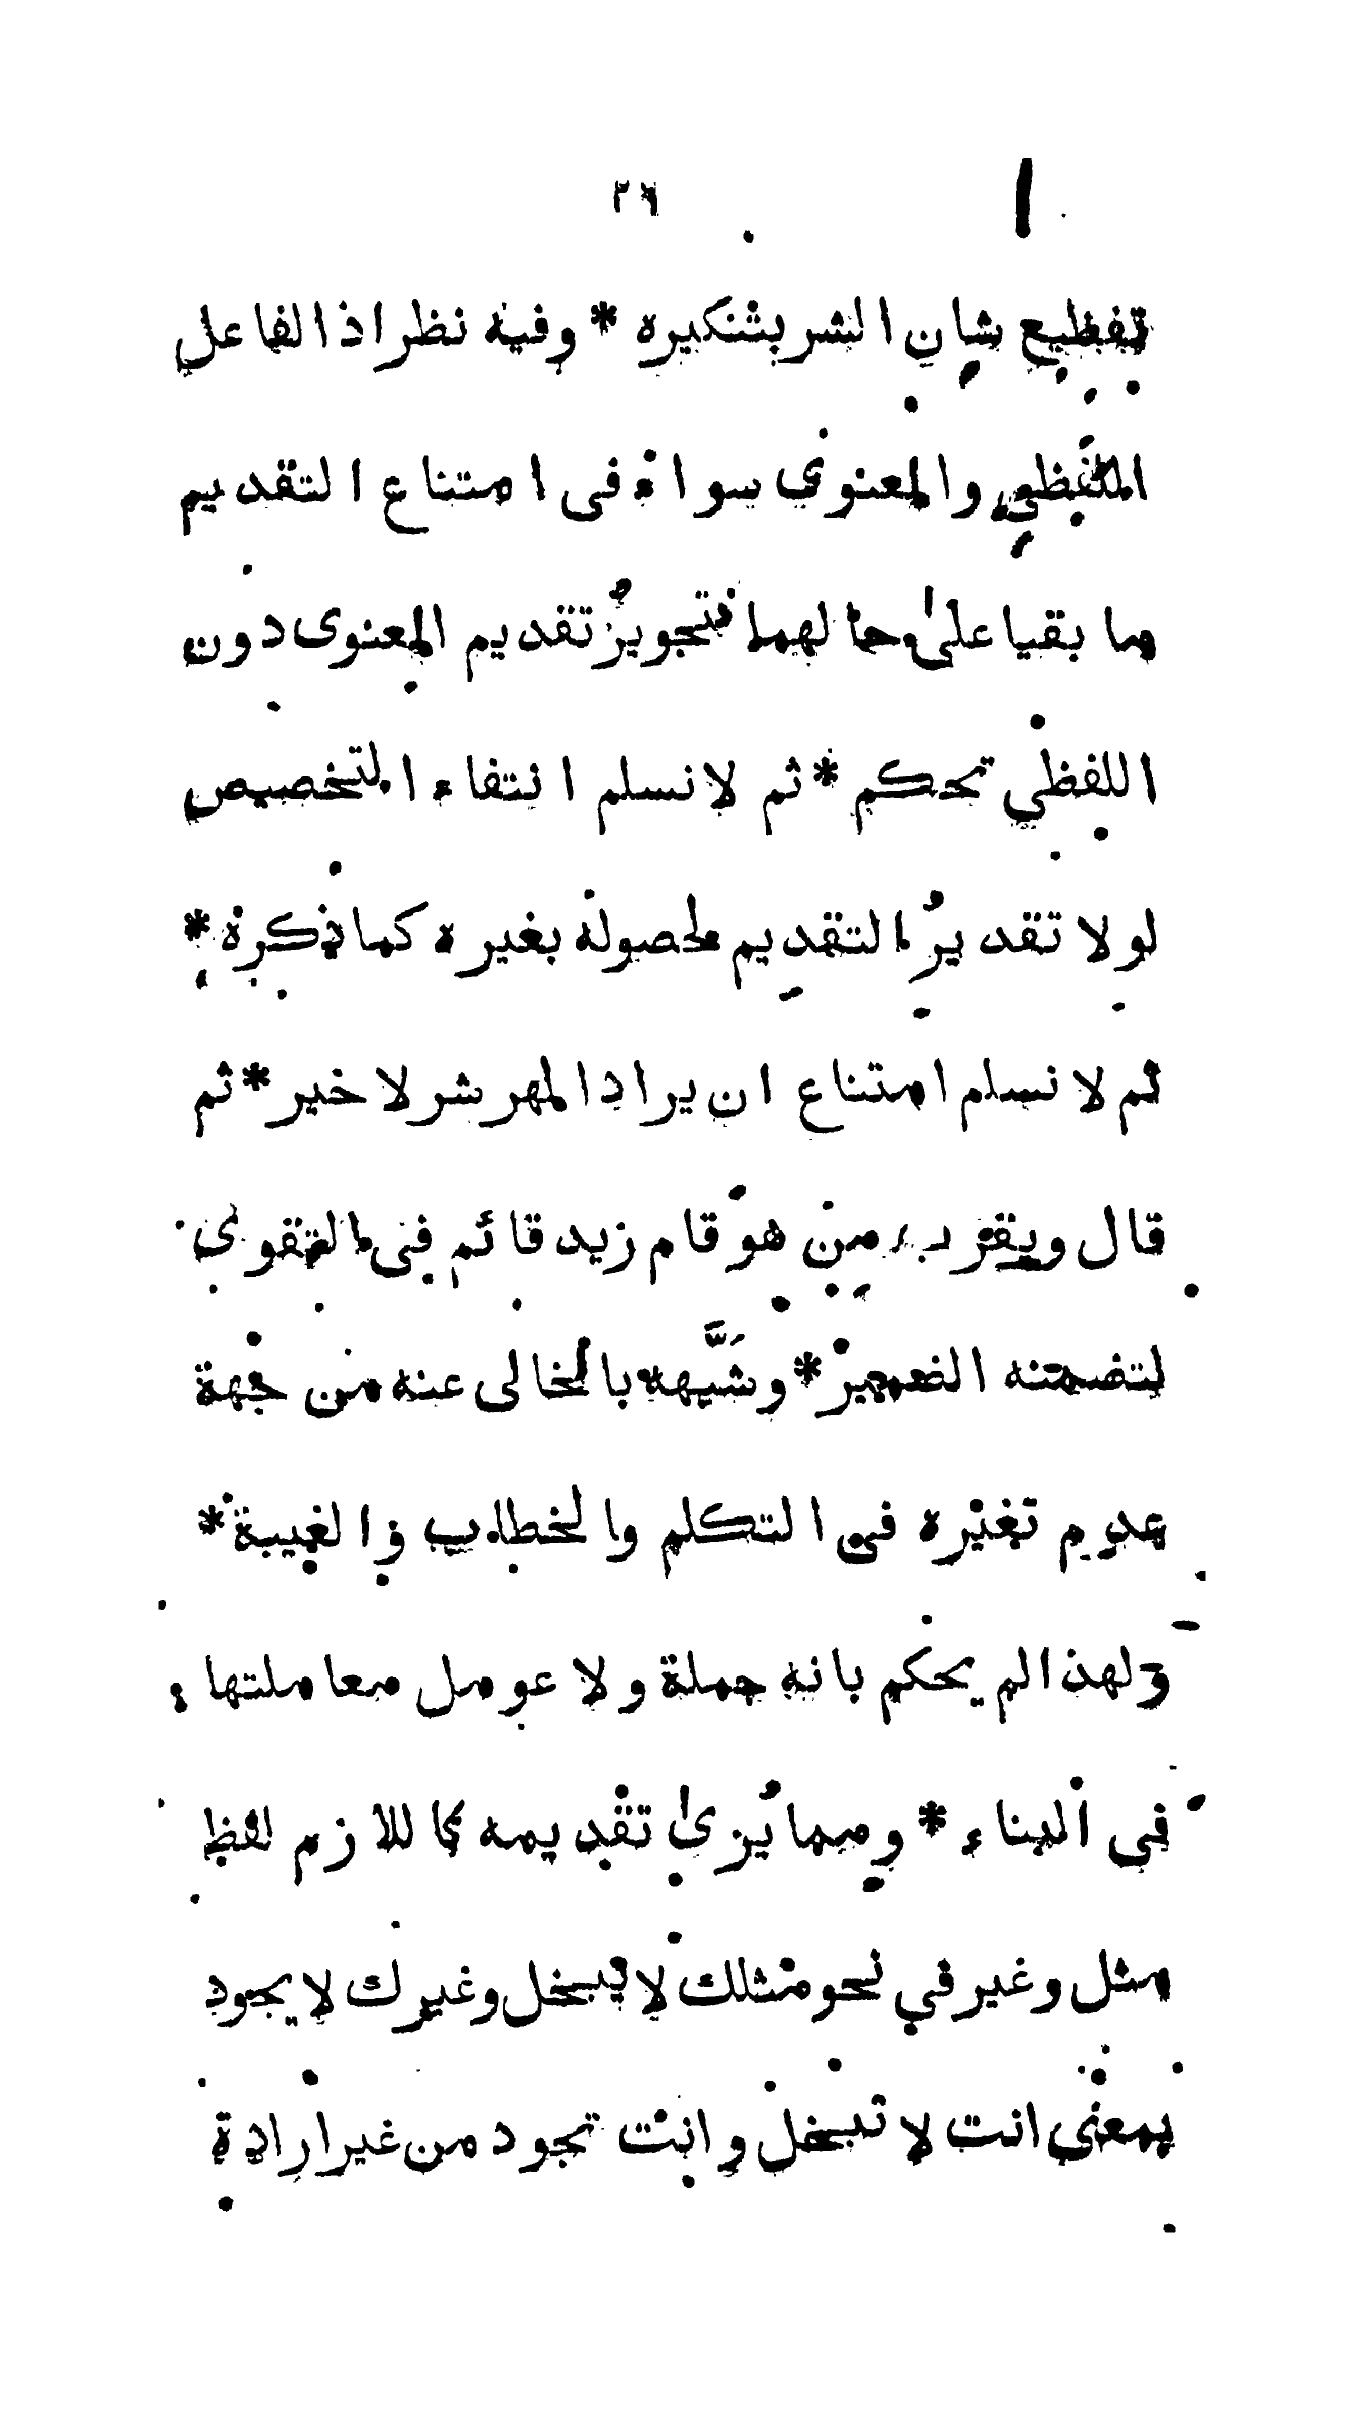 ٢٦
تفظيع شان الشر بتنكيره * وفيه نظر اذ الفاعل
اللفظي والمعنوي سواء في امتناع التقديم
ما بقيا على حالهما فتجويز تقديم المعنوى دون
اللفظي تحكم * ثم لا نسلم انتفاء التخصيص
لولا تقدير التقديم لحصوله بغيره كما ذكره *
ثم لا نسلم امتناع ان يراد المهر شر لا خير * ثم
قال ويقرب من هو قام زيد قائم في التقوي
لتضمنه الضمير * وشبهه بالخالى عنه من جهة
عدم تغيره في التكلم والخطاب والغيبة *
ولهذا لم يحكم بانه جملة ولا عومل معاملتها
في البناء * ومما يرى تقديمه كاللازم لفظ
مثل وغير في نحو مثلك لا يبخل وغيرك لا يجود
بمعنى انت لا تبخل وانت تجود من غير ارادة